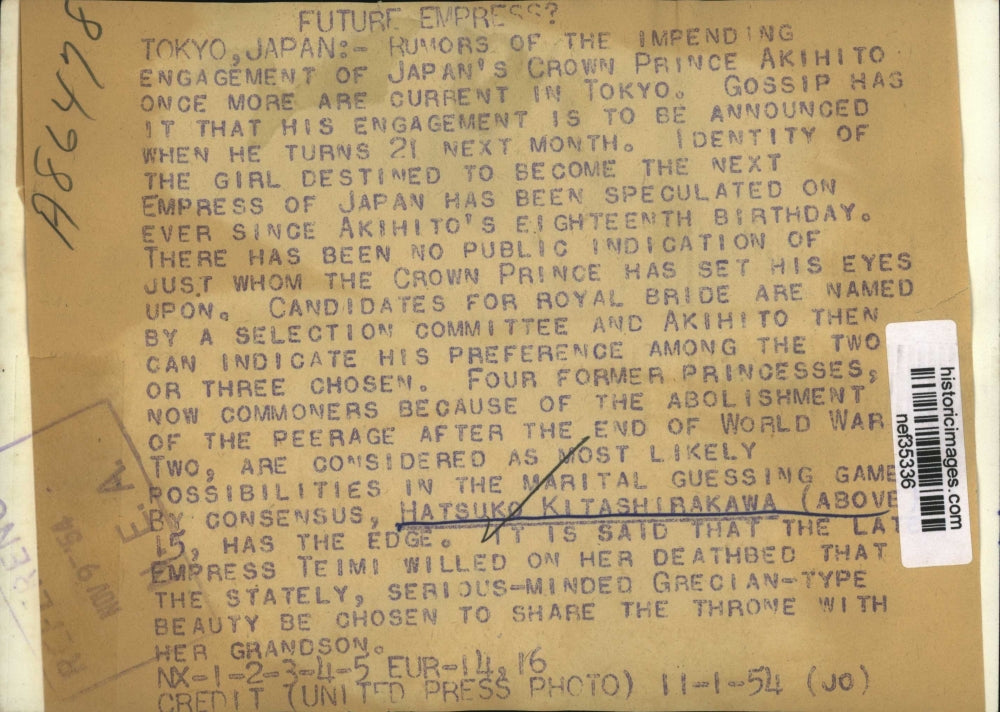 FUTURE EMPRESS?
TOKYO, JAPAN:- RUMORS OF THE IMPENDING
ENGAGEMENT OF JAPAN'S CROWN PRINCE AKIHITO
ONCE MORE ARE CURRENT IN TOKYO. GOSSIP HAS
IT THAT HIS ENGAGEMENT IS TO BE ANNOUNCED
WHEN HE TURNS 21 NEXT MONTH. IDENTITY OF
THE GIRL DESTINED TO BECOME THE NEXT
EMPRESS OF JAPAN HAS BEEN SPECULATED ON
EVER SINCE AKIHITO'S EIGHTEENTH BIRTHDAY.
THERE HAS BEEN NO PUBLIC INDICATION OF
JUST WHOM THE CROWN PRINCE HAS SET HIS EYES
UPON. CANDIDATES FOR ROYAL BRIDE ARE NAMED
BY A SELECTION COMMITTEE AND AKIHITO THEN
CAN INDICATE HIS PREFERENCE AMONG THE TWO
OR THREE CHOSEN. FOUR FORMER PRINCESSES,
NOW COMMONERS BECAUSE OF THE ABOLISHMENT
OF THE PEERAGE AFTER THE END OF WORLD WAR
TWO, ARE CONSIDERED AS MOST LIKELY
POSSIBILITIES IN THE MARITAL GUESSING GAME
BY CONSENSUS, HATSUKO KITASHIRAKAWA (ABOVE
15, HAS THE EDGE. IT IS SAID THAT THE LAT
EMPRESS TEIMI WILLED ON HER DEATHBED THAT
THE STATELY, SERIOUS-MINDED GRECIAN-TYPE
BEAUTY BE CHOSEN TO SHARE THE THRONE WITH
HER GRANDSON.
NX-1-2-3-4-5 EUR-14, 16
CREDIT (UNITED PRESS PHOTO) 11-1-54 (JO)
A86478
historicimages.com
nef35336
N. E. A.
NOV 9-54